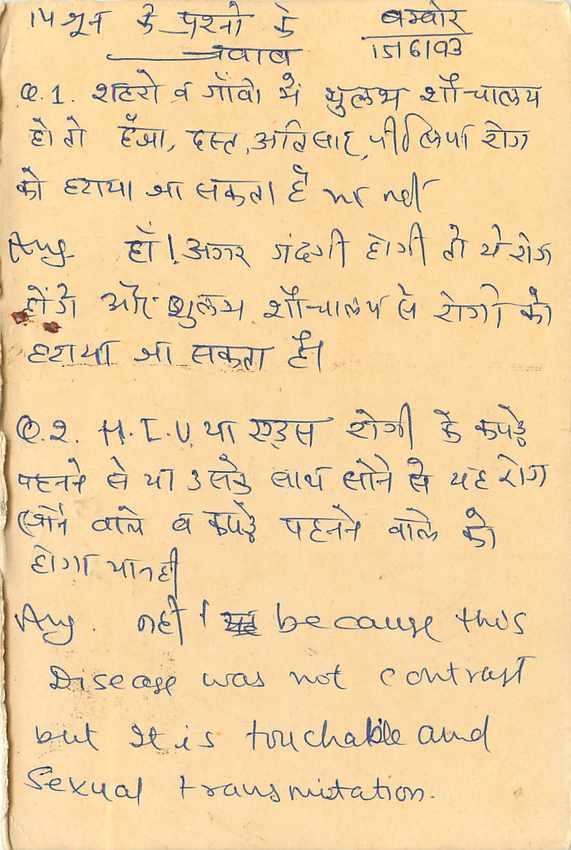 14 जून के प्रश्नो के
जवाब
बम्बोर
15/6/93
Q.1. शहरो व गाँवो मे शुलभ शौचालय
हो तो हैंजा, दस्त, अतिसार, पीलिया रोग
को हटाया जा सकता है या नही
Ans हाँ! अगर गंदगी होगी तो ये रोग
होंगे और शुलभ शौचालय से रोगो को
हटाया जा सकता है।
Q.2. H.I.V. या एड्स रोगी के कपड़े
पहनने से या उसके साथ सोने से यह रोग
सोने वाले व कपड़े पहनने वाले को
होगा या नही
Ans. नही ! because this
Disease was not contrast
but It is touchable and
Sexual transmitation.